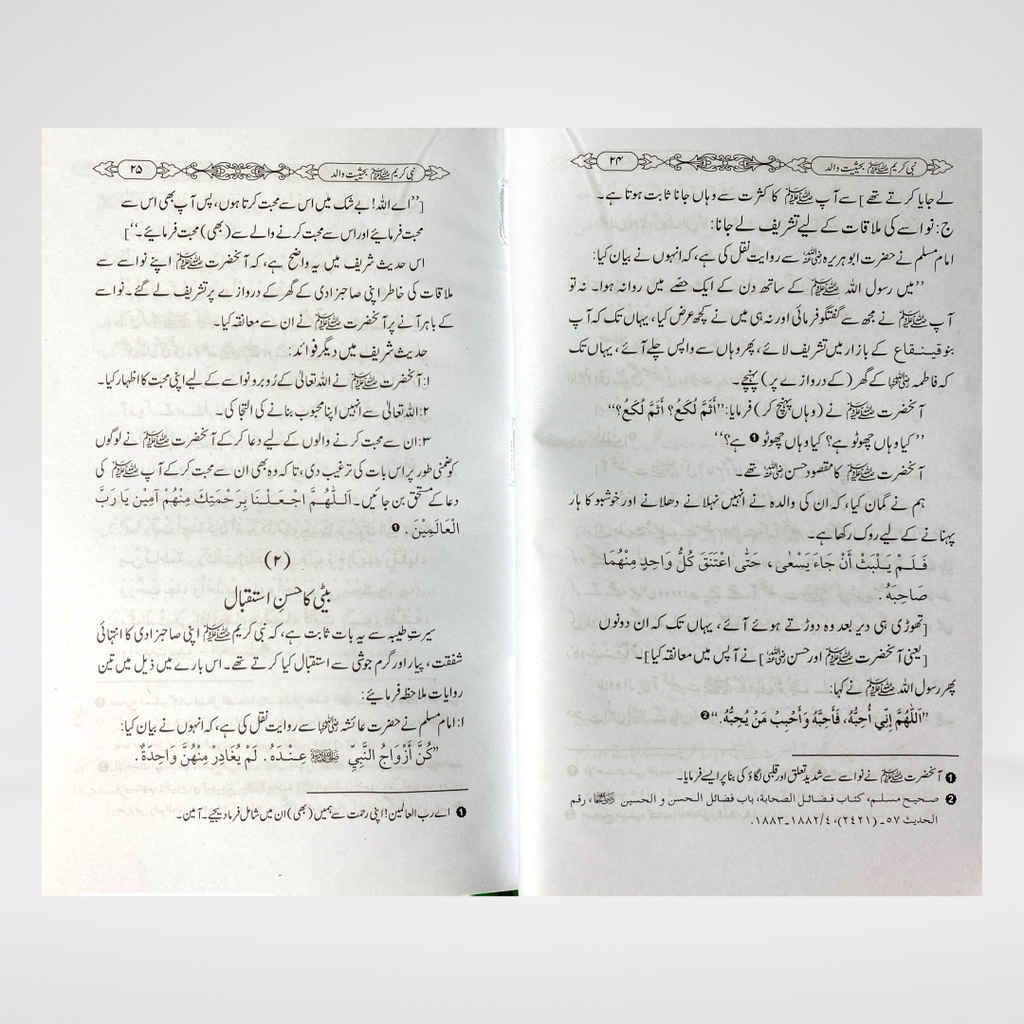 نبی کریم ﷺ بحیثیت والد
۲۴
لے جایا کرتے تھے] سے آپ ﷺ کا کثرت سے وہاں جانا ثابت ہوتا ہے۔
ج: نواسے کی ملاقات کے لیے تشریف لے جانا:
امام مسلم نے حضرت ابو ہریرہ رضی اللہ عنہ سے روایت نقل کی ہے، کہ انہوں نے بیان کیا:
’’میں رسول اللہ ﷺ کے ساتھ دن کے ایک حصّے میں روانہ ہوا۔ نہ تو
آپ ﷺ نے مجھ سے گفتگو فرمائی اور نہ ہی میں نے کچھ عرض کیا، یہاں تک کہ آپ
بنو قینقاع کے بازار میں تشریف لائے، پھر وہاں سے واپس چلے آئے، یہاں تک
کہ فاطمہ رضی اللہ عنہا کے گھر (کے دروازے پر) پہنچے۔
آنحضرت ﷺ نے (وہاں پہنچ کر) فرمایا: ’’أَثَمَّ لُكَعُ؟ أَثَمَّ لُكَعُ؟‘‘
’’کیا وہاں چھوٹو ہے؟ کیا وہاں چھوٹو ❶ ہے؟‘‘
آنحضرت ﷺ کا مقصود حسن رضی اللہ عنہ تھے۔
ہم نے گمان کیا، کہ ان کی والدہ نے انہیں نہلانے دھلانے اور خوشبو کا ہار
پہنانے کے لیے روک رکھا ہے۔
فَلَمْ يَلْبَثْ أَنْ جَاءَ يَسْعٰى، حَتّٰى اعْتَنَقَ كُلُّ وَاحِدٍ مِنْهُمَا
صَاحِبَهُ.
[تھوڑی ہی دیر بعد وہ دوڑتے ہوئے آئے، یہاں تک کہ ان دونوں
[یعنی آنحضرت ﷺ اور حسن رضی اللہ عنہ] نے آپس میں معانقہ کیا]۔
پھر رسول اللہ ﷺ نے کہا:
’’اَللّٰهُمَّ إِنِّي أُحِبُّهُ، فَأَحِبَّهُ وَأَحْبِبْ مَنْ يُحِبُّهُ.‘‘ ❷
❶ آنحضرت ﷺ نے نواسے سے شدید تعلق اور قلبی لگاؤ کی بنا پر ایسے فرمایا۔
❷ صحیح مسلم، کتاب فضائل الصحابة، باب فضائل الحسن و الحسین رضی اللہ عنہما، رقم
الحدیث ۵۷۔ (۲۴۲۱)، ۴/۱۸۸۲۔۱۸۸۳.
نبی کریم ﷺ بحیثیت والد
۲۵
[’’اے اللہ! بے شک میں اس سے محبت کرتا ہوں، پس آپ بھی اس سے
محبت فرمائیے اور اس سے محبت کرنے والے سے (بھی) محبت فرمائیے۔‘‘]
اس حدیث شریف میں یہ واضح ہے، کہ آنحضرت ﷺ اپنے نواسے سے
ملاقات کی خاطر اپنی صاحبزادی کے گھر کے دروازے پر تشریف لے گئے۔ نواسے
کے باہر آنے پر آنحضرت ﷺ نے ان سے معانقہ کیا۔
حدیث شریف میں دیگر فوائد:
۱: آنحضرت ﷺ نے اللہ تعالیٰ کے رُوبرو نواسے کے لیے اپنی محبت کا اظہار کیا۔
۲: اللہ تعالیٰ سے انہیں اپنا محبوب بنانے کی التجا کی۔
۳: ان سے محبت کرنے والوں کے لیے دعا کر کے آنحضرت ﷺ نے لوگوں
کو ضمنی طور پر اس بات کی ترغیب دی، تاکہ وہ بھی ان سے محبت کر کے آپ ﷺ کی
دعا کے مستحق بن جائیں۔ اَللّٰهُمَّ اجْعَلْنَا بِرَحْمَتِكَ مِنْهُمْ آمِيْنَ يَا رَبَّ
الْعَالَمِيْنَ. ❶
(۲)
بیٹی کا حسنِ استقبال
سیرتِ طیبہ سے یہ بات ثابت ہے، کہ نبی کریم ﷺ اپنی صاحبزادی کا انتہائی
شفقت، پیار اور گرم جوشی سے استقبال کیا کرتے تھے۔ اس بارے میں ذیل میں تین
روایات ملاحظہ فرمائیے:
۱: امام مسلم نے حضرت عائشہ رضی اللہ عنہا سے روایت نقل کی ہے، کہ انہوں نے بیان کیا:
’’كُنَّ أَزْوَاجُ النَّبِيِّ ﷺ عِنْدَهُ. لَمْ يُغَادِرْ مِنْهُنَّ وَاحِدَةٌ.
❶ اے رب العالمین! اپنی رحمت سے ہمیں (بھی) ان میں شامل فرما دیجیے۔ آمین۔